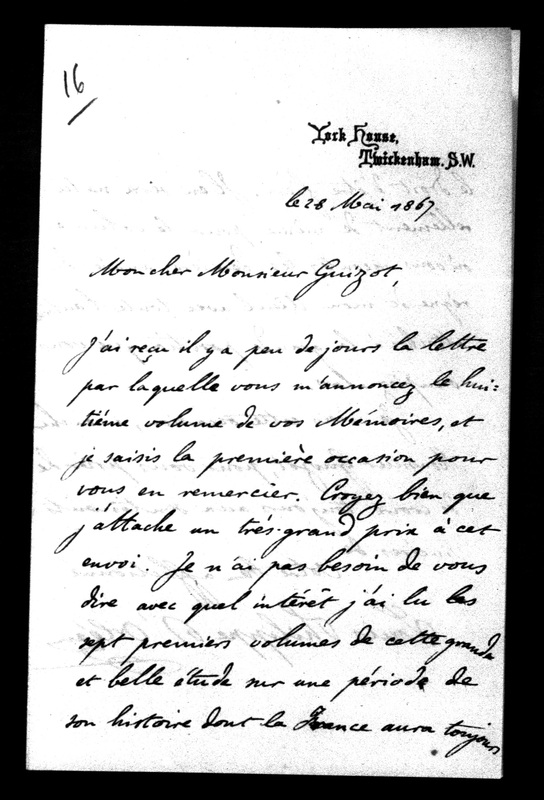 16
York House,
Twickenham. S.W.
le 28 Mai 1867
Mon cher Monsieur Guizot,
J'ai reçu il y a peu de jours la lettre
par laquelle vous m'annoncez le hui-
tième volume de vos Mémoires, et
je saisis la première occasion pour
vous en remercier. Croyez bien que
j'attache un très-grand prix à cet
envoi. Je n'ai pas besoin de vous
dire avec quel intérêt j'ai lu les
sept premiers volumes de cette grande
et belle étude sur une période de
son histoire dont la France aura toujours